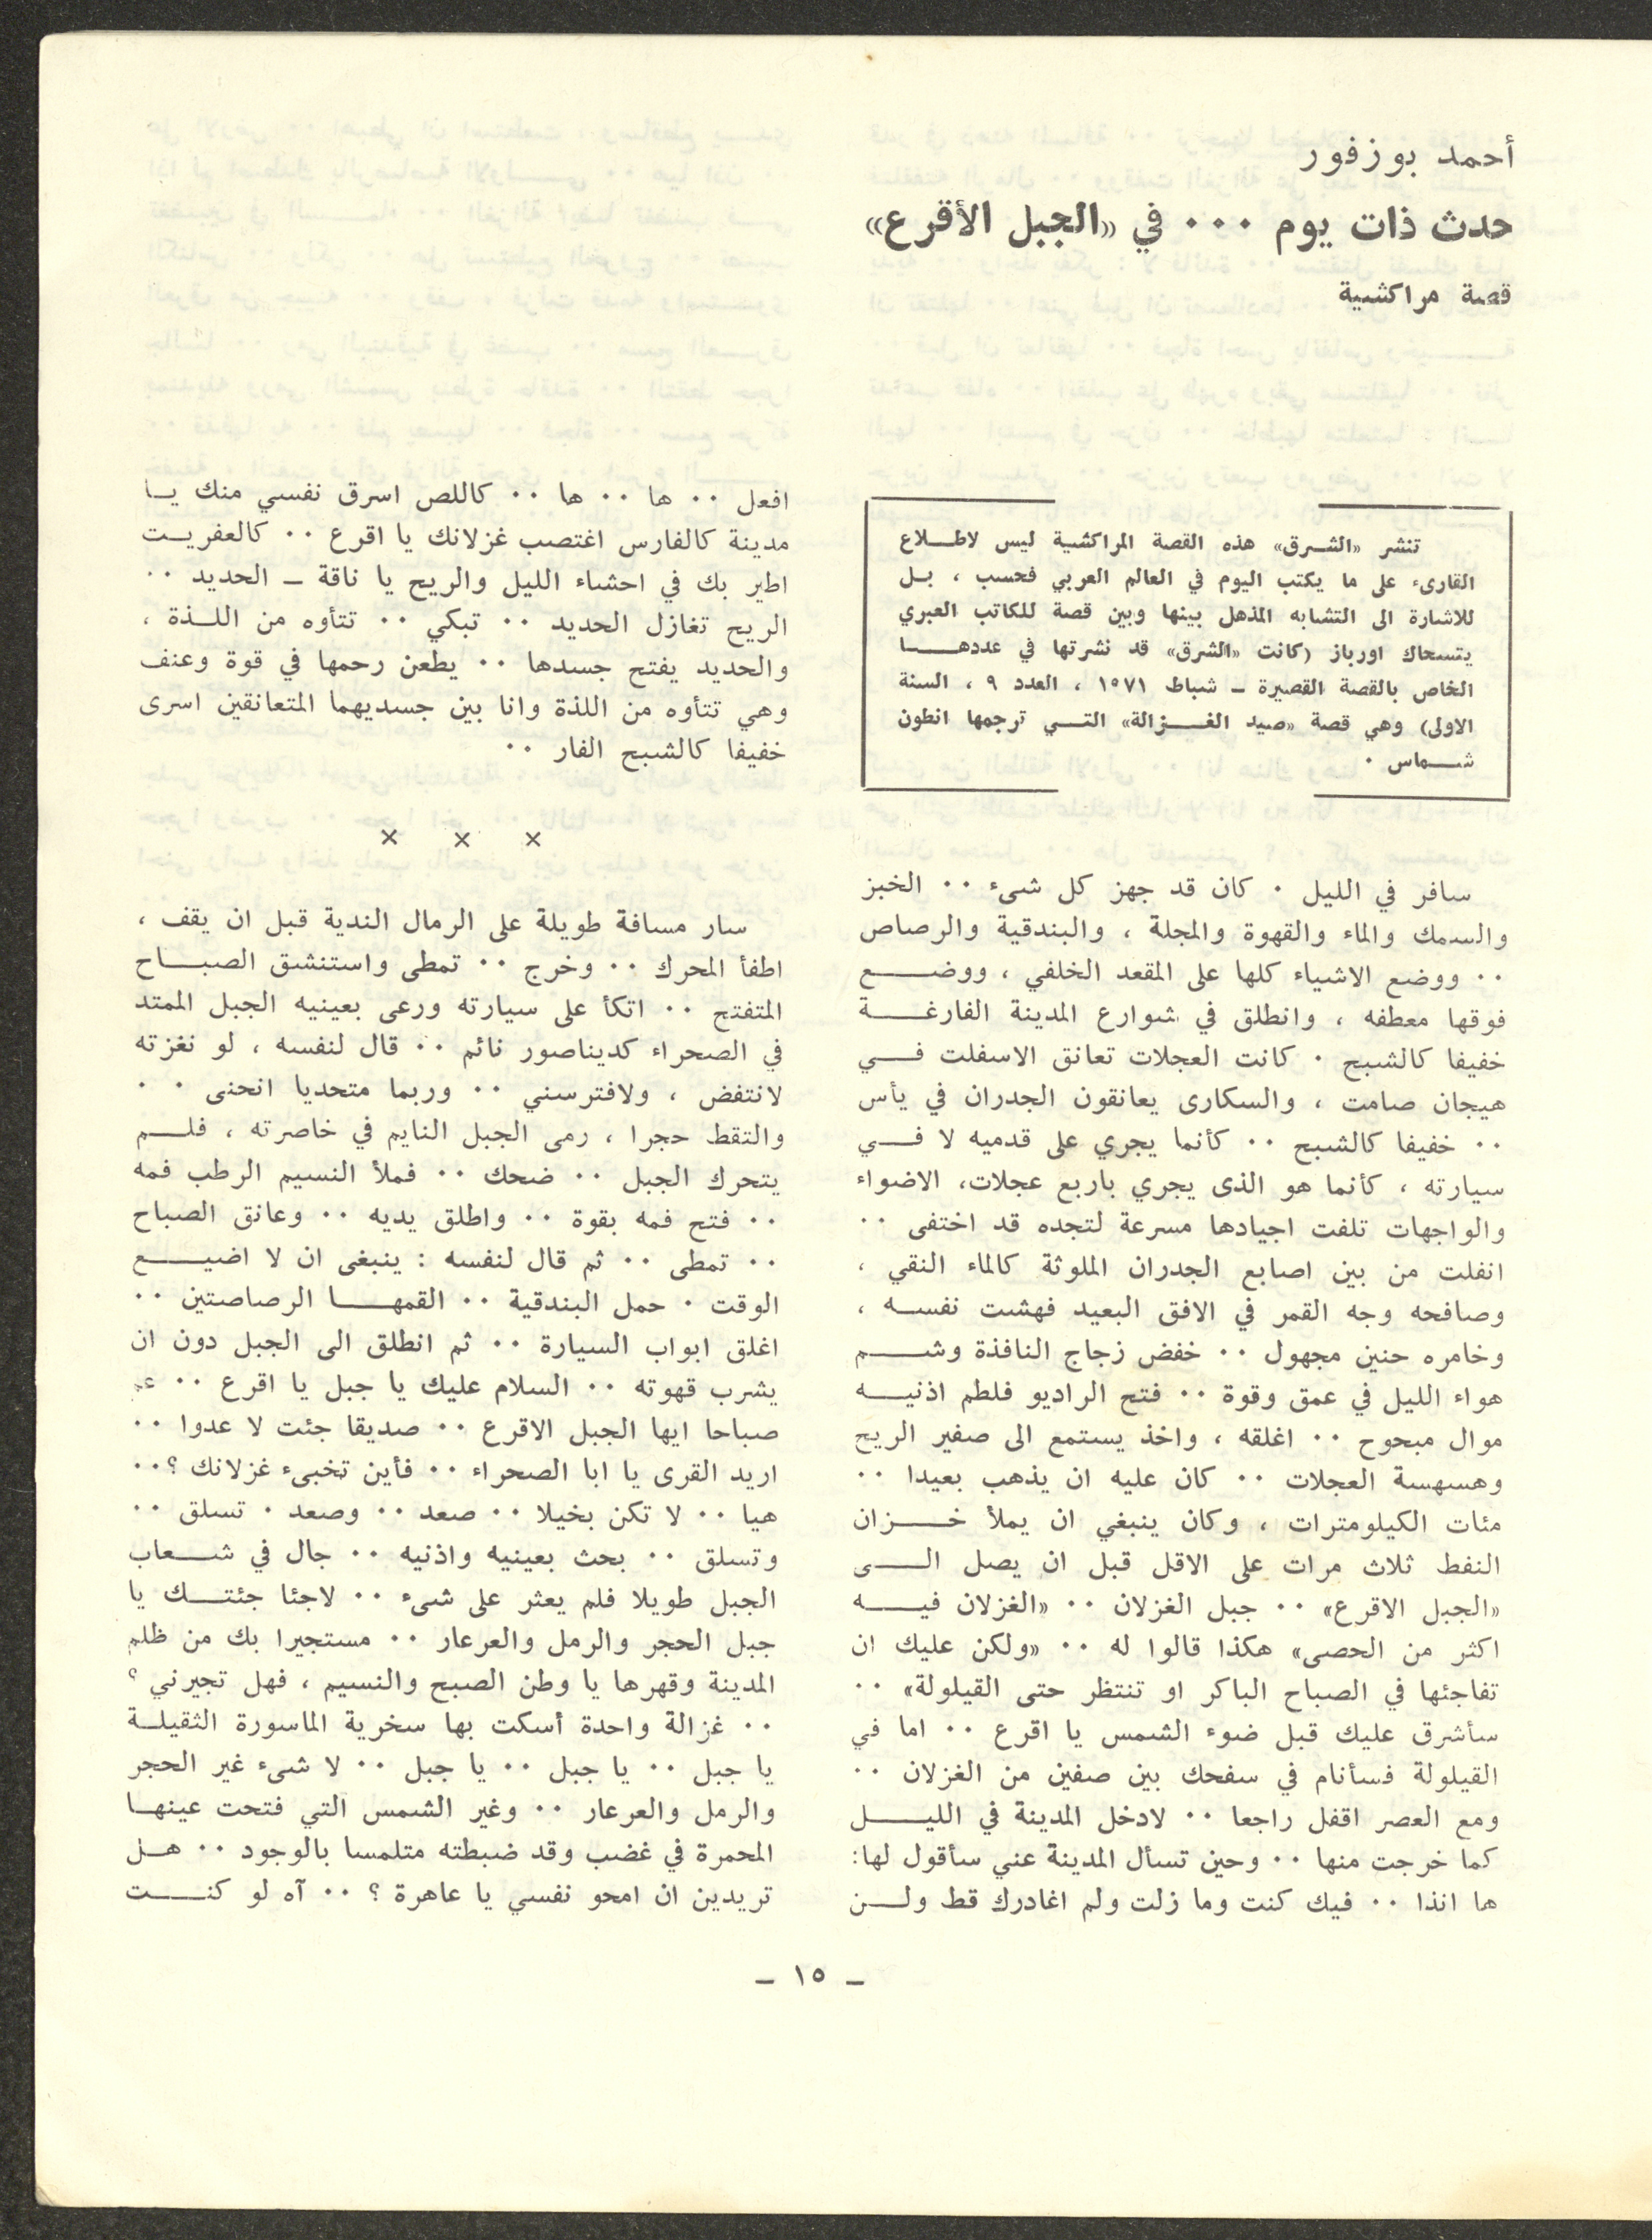 أحمد بوزفور
حدث ذات يوم ٠٠٠ في «الجبل الأقرع»
قصة مراكشية
تنشر «الشرق» هذه القصة المراكشية ليس لاطلاع
القارىء على ما يكتب اليوم في العالم العربي فحسب ، بل
للاشارة الى التشابه المذهل بينها وبين قصة للكاتب العبري
يتسحاك اورباز (كانت «الشرق» قد نشرتها في عددها
الخاص بالقصة القصيرة ـ شباط ١٩٧١ ، العدد ٩ ، السنة
الاولى) وهي قصة «صيد الغزالة» التي ترجمها انطون
شماس ٠
سافر في الليل ٠ كان قد جهز كل شىء ٠٠ الخبز
والسمك والماء والقهوة والمجلة ، والبندقية والرصاص
٠٠ ووضع الاشياء كلها على المقعد الخلفي ، ووضع
فوقها معطفه ، وانطلق في شوارع المدينة الفارغة
خفيفا كالشبح ٠ كانت العجلات تعانق الاسفلت في
هيجان صامت ، والسكارى يعانقون الجدران في يأس
٠٠ خفيفا كالشبح ٠٠ كأنما يجري على قدميه لا في
سيارته ، كأنما هو الذى يجري باربع عجلات، الاضواء
والواجهات تلفت اجيادها مسرعة لتجده قد اختفى ٠٠
انفلت من بين اصابع الجدران الملوثة كالماء النقي ،
وصافحه وجه القمر في الافق البعيد فهشت نفسه ،
وخامره حنين مجهول ٠٠ خفض زجاج النافذة وشم
هواء الليل في عمق وقوة ٠٠ فتح الراديو فلطم اذنيه
موال مبحوح ٠٠ اغلقه ، واخذ يستمع الى صفير الريح
وهسهسة العجلات ٠٠ كان عليه ان يذهب بعيدا ٠٠
مئات الكيلومترات ، وكان ينبغي ان يملأ خزان
النفط ثلاث مرات على الاقل قبل ان يصل الى
«الجبل الاقرع» ٠٠ جبل الغزلان ٠٠ «الغزلان فيه
اكثر من الحصى» هكذا قالوا له ٠٠ «ولكن عليك ان
تفاجئها في الصباح الباكر او تنتظر حتى القيلولة» ٠٠
سأشرق عليك قبل ضوء الشمس يا اقرع ٠٠ اما في
القيلولة فسأنام في سفحك بين صفين من الغزلان ٠٠
ومع العصر اقفل راجعا ٠٠ لادخل المدينة في الليل
كما خرجت منها ٠٠ وحين تسأل المدينة عني سأقول لها:
ها انذا ٠٠ فيك كنت وما زلت ولم اغادرك قط ولن
افعل ٠٠ ها ٠٠ ها ٠٠ كاللص اسرق نفسي منك يا
مدينة كالفارس اغتصب غزلانك يا اقرع ٠٠ كالعفريت
اطير بك في احشاء الليل والريح يا ناقة ـ الحديد ٠٠
الريح تغازل الحديد ٠٠ تبكي ٠٠ تتأوه من اللذة ،
والحديد يفتح جسدها ٠٠ يطعن رحمها في قوة وعنف
وهي تتأوه من اللذة وانا بين جسديهما المتعانقين اسرى
خفيفا كالشبح الفار ٠٠
× × ×
سار مسافة طويلة على الرمال الندية قبل ان يقف ،
اطفأ المحرك ٠٠ وخرج ٠٠ تمطى واستنشق الصباح
المتفتح ٠٠ اتكأ على سيارته ورعى بعينيه الجبل الممتد
في الصحراء كديناصور نائم ٠٠ قال لنفسه ، لو نغزته
لانتفض ، ولافترسني ٠٠ وربما متحديا انحنى ٠ ٠
والتقط حجرا ، رمى الجبل النايم في خاصرته ، فلم
يتحرك الجبل ٠٠ ضحك ٠٠ فملأ النسيم الرطب فمه
٠٠ فتح فمه بقوة ٠٠ واطلق يديه ٠٠ وعانق الصباح
٠٠ تمطى ٠٠ ثم قال لنفسه : ينبغى ان لا اضيع
الوقت ٠ حمل البندقية ٠٠ القمها الرصاصتين ٠٠
اغلق ابواب السيارة ٠٠ ثم انطلق الى الجبل دون ان
يشرب قهوته ٠٠ السلام عليك يا جبل يا اقرع ٠٠ عم
صباحا ايها الجبل الاقرع ٠٠ صديقا جئت لا عدوا ٠٠
اريد القرى يا ابا الصحراء ٠٠ فأين تخبىء غزلانك ؟٠٠
هيا ٠٠ لا تكن بخيلا ٠٠ صعد ٠٠ وصعد ٠ تسلق ٠٠
وتسلق ٠٠ بحث بعينيه واذنيه ٠٠ جال في شعاب
الجبل طويلا فلم يعثر على شىء ٠٠ لاجئا جئتك يا
جبل الحجر والرمل والعرعار ٠٠ مستجيرا بك من ظلم
المدينة وقهرها يا وطن الصبح والنسيم ، فهل تجيرني ؟
٠٠ غزالة واحدة أسكت بها سخرية الماسورة الثقيلة
يا جبل ٠٠ يا جبل ٠٠ يا جبل ٠٠ لا شىء غير الحجر
والرمل والعرعار ٠٠ وغير الشمس التي فتحت عينها
المحمرة في غضب وقد ضبطته متلمسا بالوجود ٠٠ هل
تريدين ان امحو نفسي يا عاهرة ؟ ٠٠ آه لو كنت
ـ ١٥ ـ